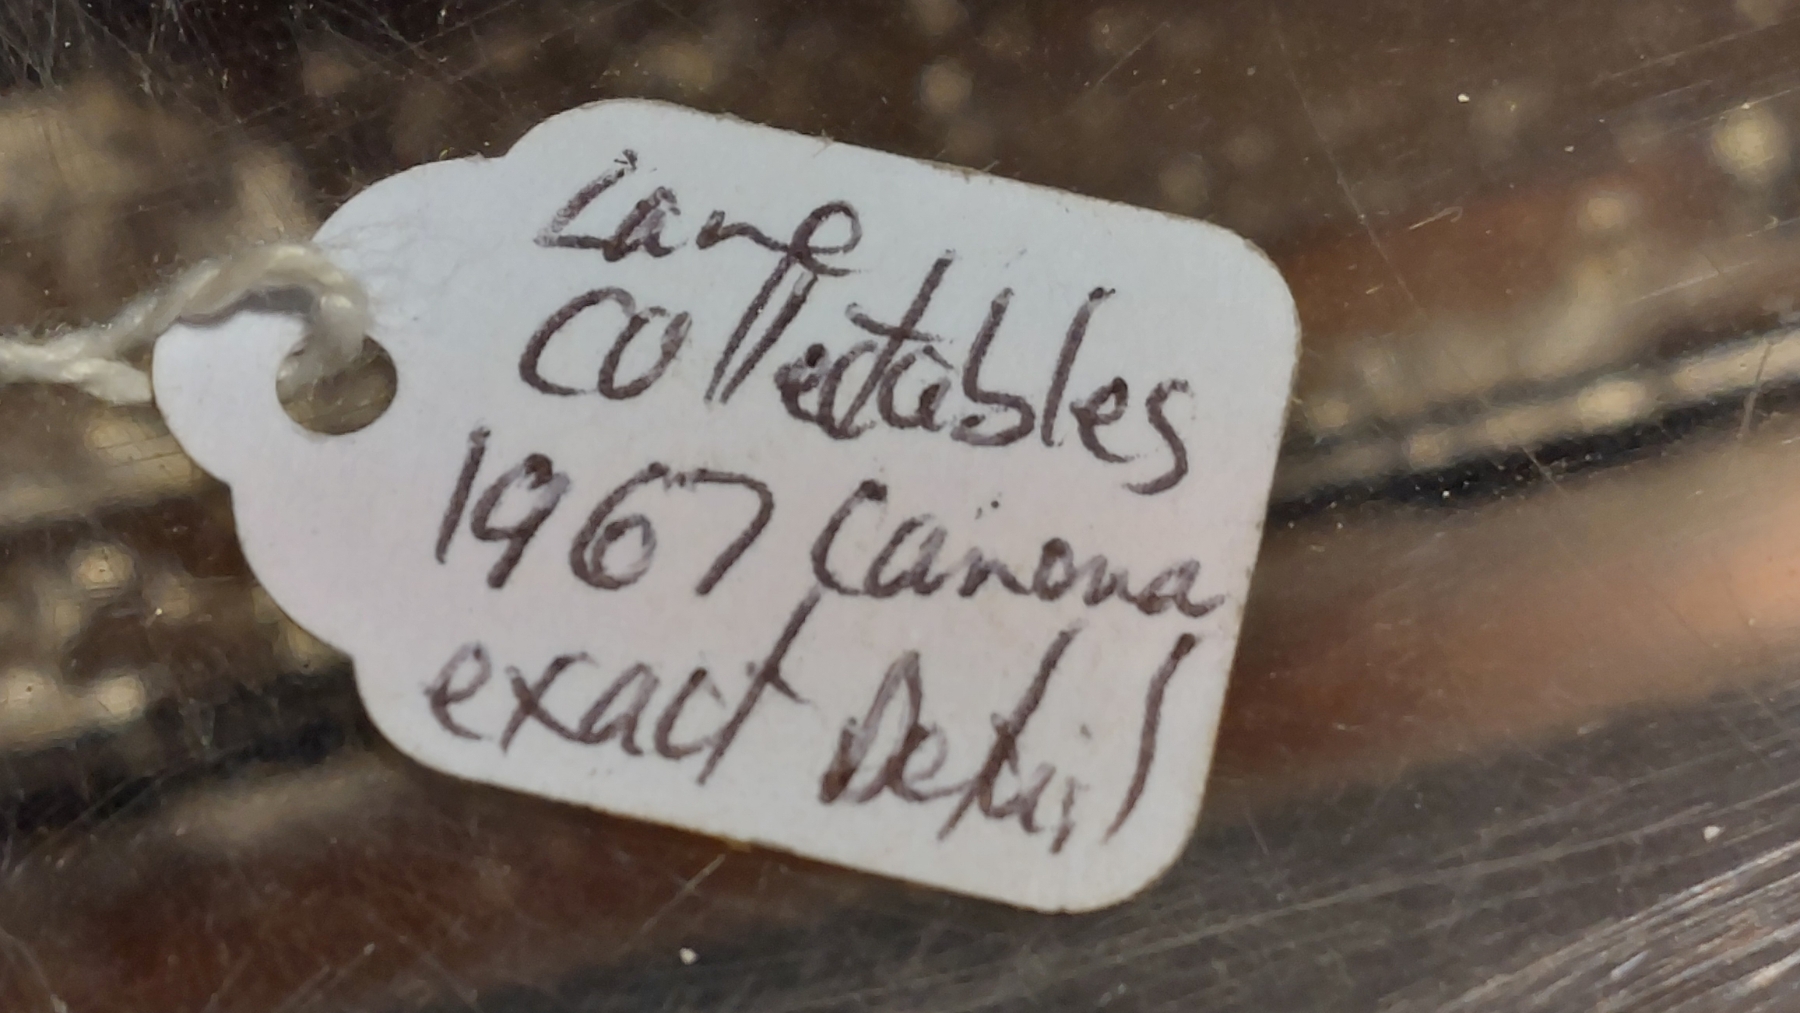 Lane
Collectables
1967 Camona
exact Detail